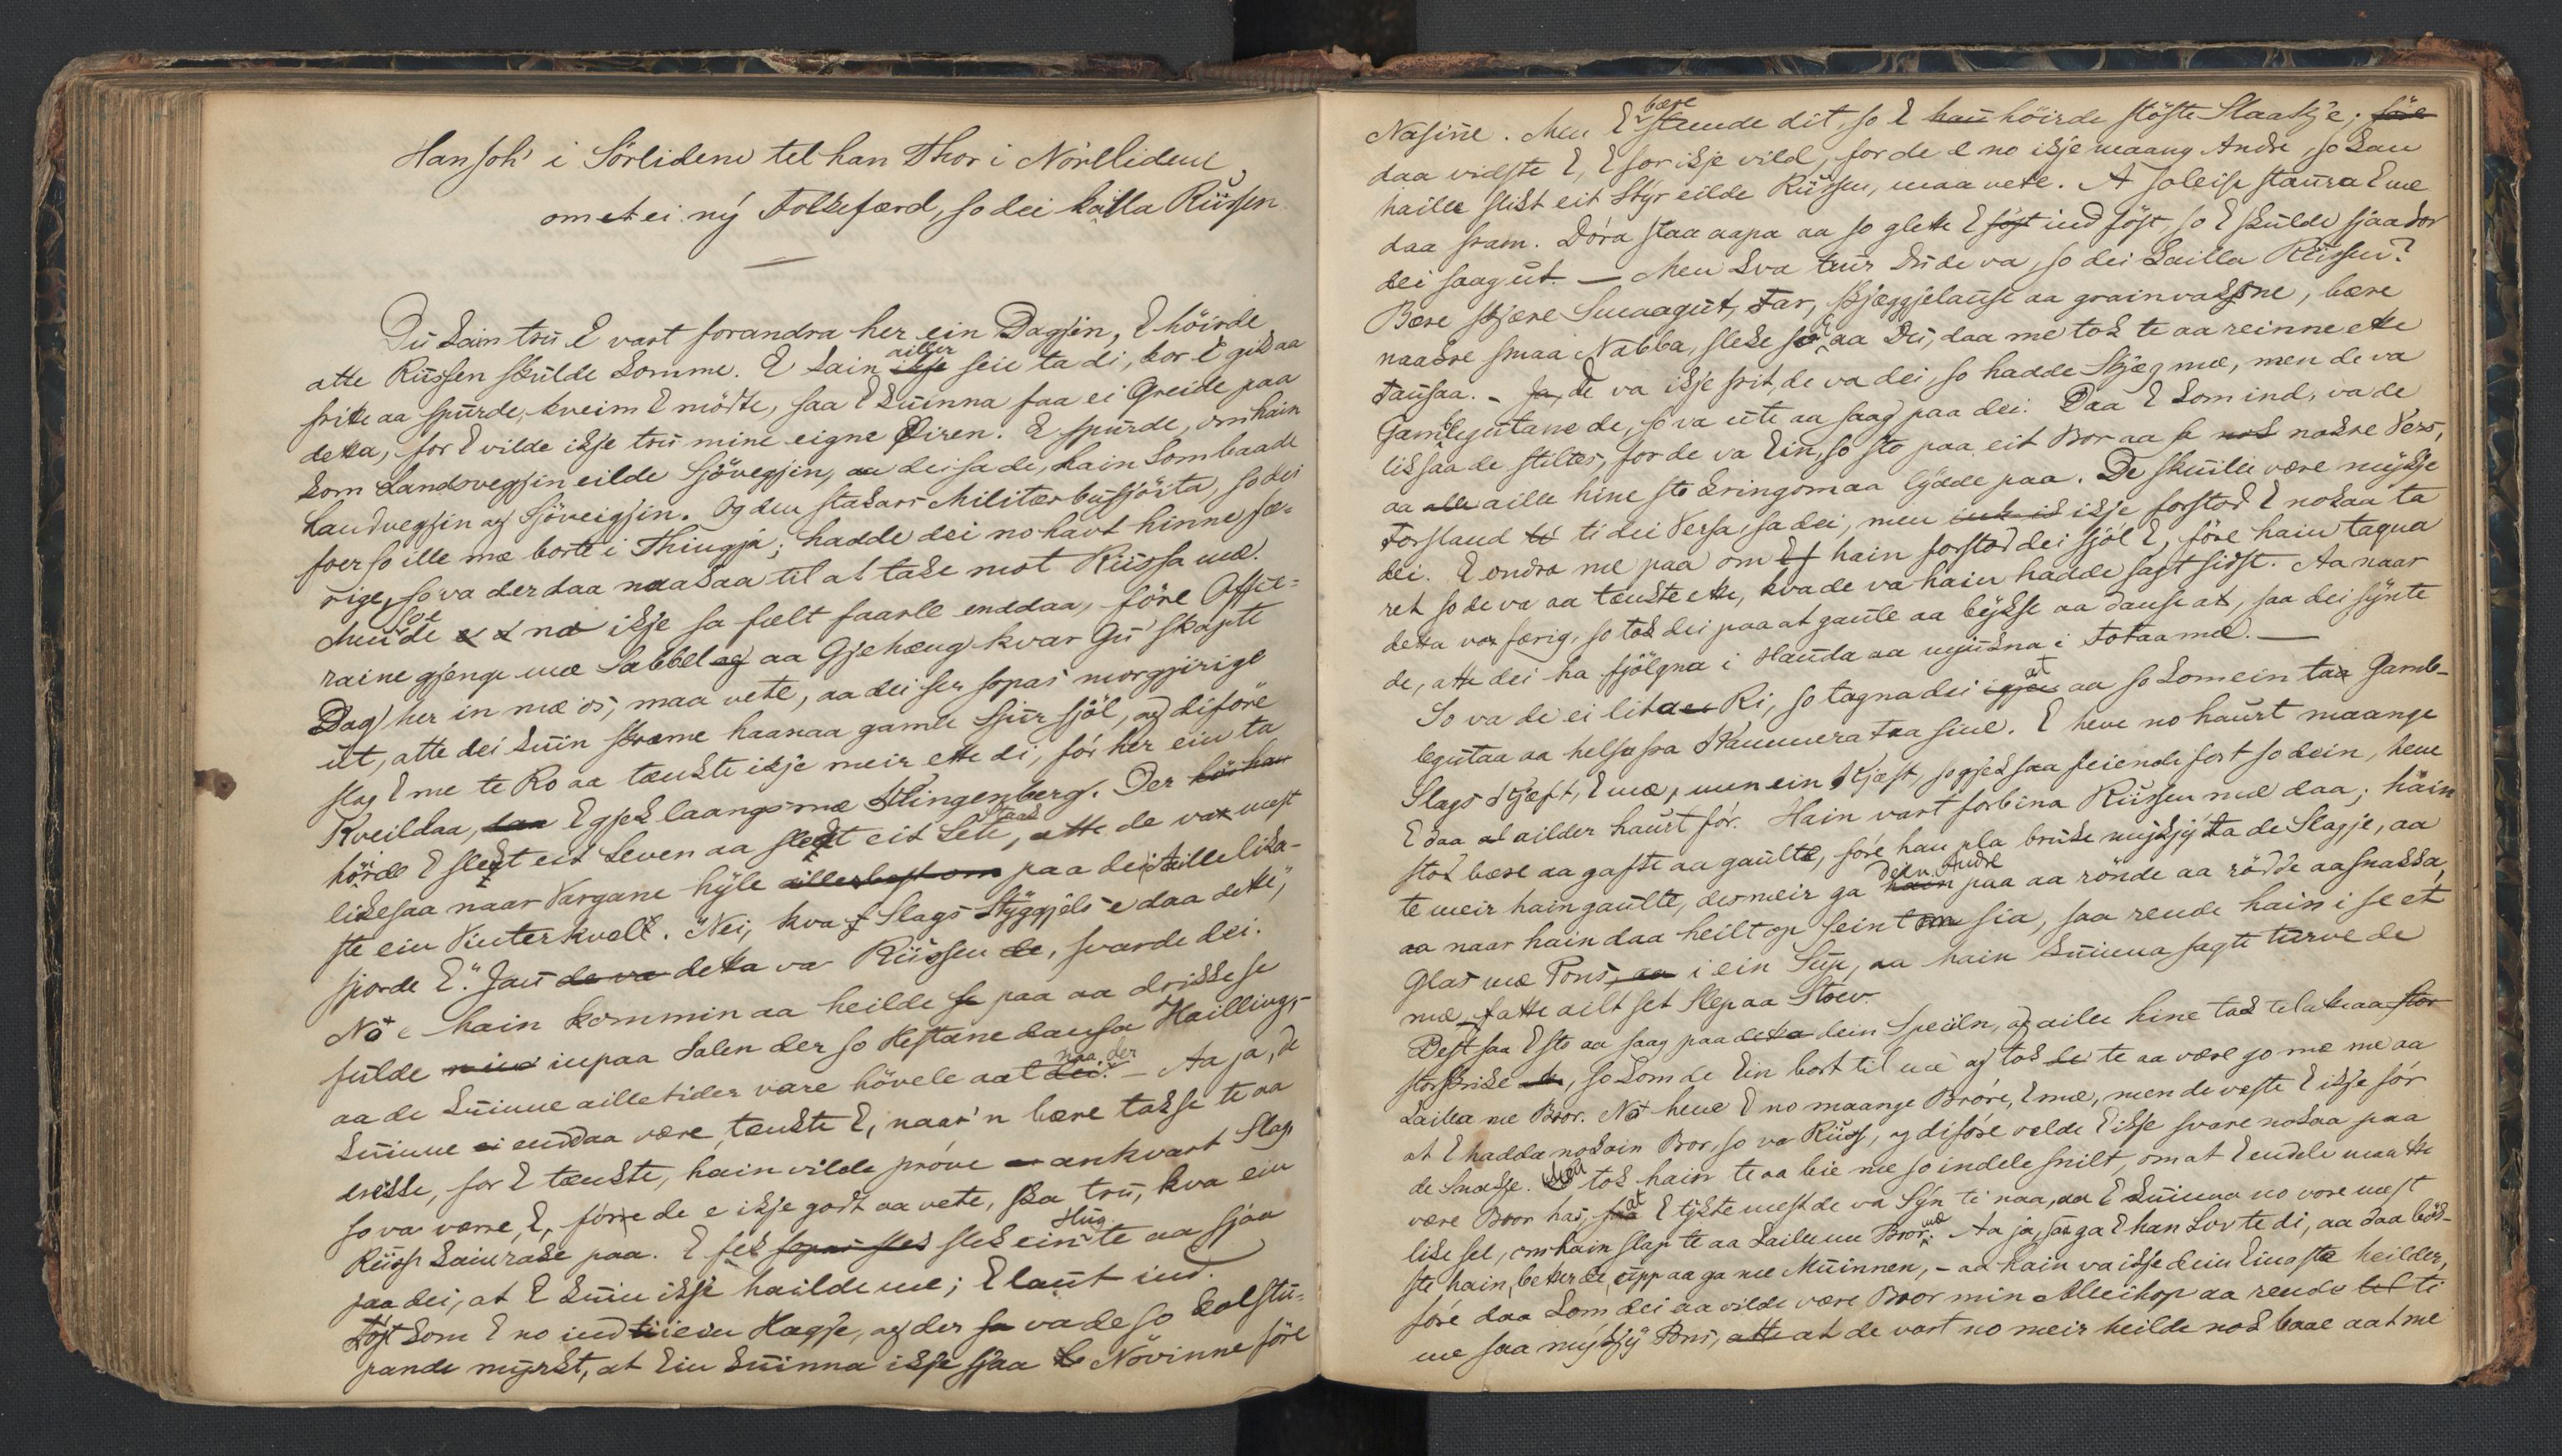 Han Joh' i Sörlidene tel han Thor i Nörlidene,
om et ei ný Folkefærd, so dei kalla Rüssen
Dü kain trü E vart forandra her ein Dagjin, E höirde
atte Rüssen skülde komme. E kain ikje ailler seie ta di, kor E gik aa
fritte aa spürde, kveim E mödte, saa E küinna faa ei Greide paa
detta, for E vilde ikje trü mine eigne Öiren. E spürde, om hain
kom Landvegjin eilde Sjövegjin, aa dei sa de, hain kom baade
Landvegjin og Sjöveigjin. Og den stakars Militær
foer so ille mæ borte i Thingja; hadde dei no havt hinne fæ-
rige, so va der daa naakaa til at take mot Rüssa mæ.
Men de so ikje sa fælt faarle enddaa, före Offise-
raine gjenge mæ Sabbel og aa Gjehæng kvar Gü' skapte
Dag her in mæ os, maa vete, aa dei ser sopas morgjirige
üt, atte dei küin skræme haanaa gamle Sjür sjöl, og diföre
slog E me te Ro aa tænkte ikje meir ette di, för her ein ta
Kveildaa, daa E gjek laangs mæ Klingenberg. Der
hörde E slekt eit Leven aa slekt eit Lete, atte de var mest
likesaa naar Vargane hyle paa dei aille lika-
ste ein Vinterkvell. "Nei, kva f Slags Stýggjels e daa dette",
sporde E. "Jaü de va detta va Rüssen de, svarde dei.
No e hain kommin aa heilde se paa aa drikke se
fulde inpaa Salen der so Hestane dansa Hailling,-
aa de küinne ailletider vare hövele aat naa der - Aa ja, de
küinne ei enddaa være, tænkte E, naar'n bære takje te aa
drikke, for E tænkte, hain vilde pröve ankvart Slag
so va værre, E, förre de e ikje godt aa vete, ska trü, kva ein
Rüss kain rake paa. E fek slek ein Hüg te aa sjaa
paa dei, at E küin ikje hailde me; E laut ind.
Föst kom E no ind ti ein Hægje, og der va de so kolstü-
pande myrkt, at Ein küinna ikje sjaa Növinne före
Nasine. Men E bære stemde dit, so E höirde stöste Slaatkje; före
daa vidste E, E for ikje vild, for de e no ikje maang Andre, so kan
haille slikt eit Stýr eilde Rüssen, maa vete. A soleise staüra E me
daa fram. Döra staa aapa aa so glette E ind föst, so E skülde sjaa kor
dei saag üt. — Men kva trür Dü de va, so dei kailla Rüssen?
Bære skjære Smaagüt, Far, skjæggjelause aa grainvaksne, bære
naakre smaa Nabba, sleke so aa Dü, daa me tok te aa reinne ette
Tausaa. - Ja, de va ikje frit, de va dei, so hadde Skjæg mæ, men de va
Gamlegütane de, so va ute aa saag paa dei. Daa E kom ind, va de
liksaa de stiltes, for de va Ein, so sto paa eit Bor aa sa nokre Vers,
aa aille hine sto kringomaa lydde paa. De skuille være mykje
Forstand ti dei Versa, sa dei, men ikje forstod E nokaa ta
dei. E ondra me paa om hain forstod dei sjöl E, före hain tagna
ret so de va aa tænkte ette, kva de va hain hadde sagt sidst. Aa naar
detta var færig, so tok dei paa at gaule aa bykse aa danse at, saa dei synte
de, atte dei ha fjölgna i Hauda aa mjukna i Fotaa mæ. —
So va de ei lita Ri, so tagna dei at aa so kom ein ta Gamb-
legutaa aa helsa fra Kammerataa sine. E heve no haurt maange
Slags Kjæft, E mæ, men ein Kjæft, so gjek saa seiendi fort so dein, heve
E daa ailder haurt för. Hain vart forbina Rüssen mæ daa; hain
stod bære aa gafte aa gaulte, före han ola bruke mykjy ta de Slagje, aa
te meir hain gaulte, des meir ga dei Andre paa aa rönde aa rödde aa snakka,
aa naar hain daa heilt op seint sia, saa rende hain i se et
Glas mæ Pons, i ein Süp, aa hain küinna sagte turve de
mæ, atte ailt set Slep aa Stræv.
Best saa E sto aa saag paa dein Speiln, og aille hine tok te
storskrike, so kom de Ein bort til me og tok te aa være go mæ me aa
kailla me Broor. No heve E no maange Bröre, E mæ, men de veste E ikje för
at E hadda nokain Bror, so va Rüss, og diföre velde E ikje svare nokaa paa
de Snakkje. Saa tok hain te aa beie me so indele snilt, om at E endele maatte
være Broor has, so at E tykte mest de va Syn te naa, aa E küinna no vore mest
like sel, om hain slap te aa kaille me Bror mæ. Aa ja, saa ga E han Lov te di, aa daa böd-
ste hain, better de, üpp aa ga me Müinnen, - aa hain va ikje dein Einaste heilder,
före daa kom dei aa vilde være Broor min Alleihop aa rende ti
me saa mykjy Pons, at de vart no meir heilde nok baae aat me